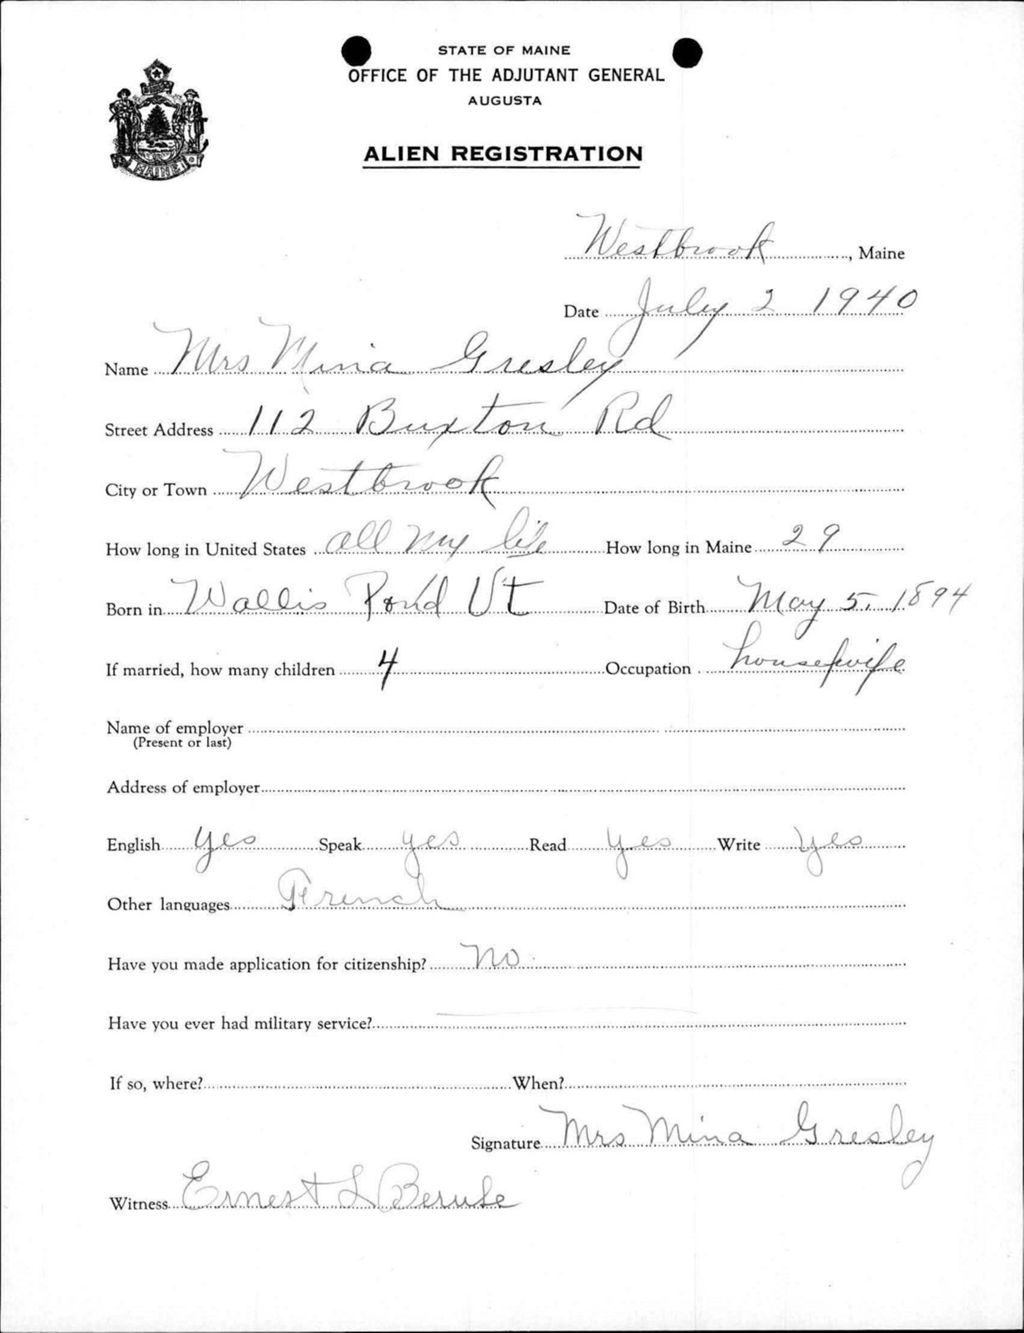 STATE OF MAINE
OFFICE OF THE ADJUTANT GENERAL
AUGUSTA
ALIEN REGISTRATION
MAINE
Westbrook, Maine
Date July 2 1940
Name Mrs Mina Gresley
Street Address 112 Buxton Rd
City or Town Westbrook
How long in United States all my life How long in Maine 29
Born in Wallis Pond Vt Date of Birth May 5, 1894
If married, how many children 4 Occupation housewife
Name of employer
(Present or last)
Address of employer
English yes Speak yes Read yes Write yes
Other languages French
Have you made application for citizenship? No
Have you ever had military service?
If so, where? When?
Signature Mrs Mina Gresley
Witness Ernest L